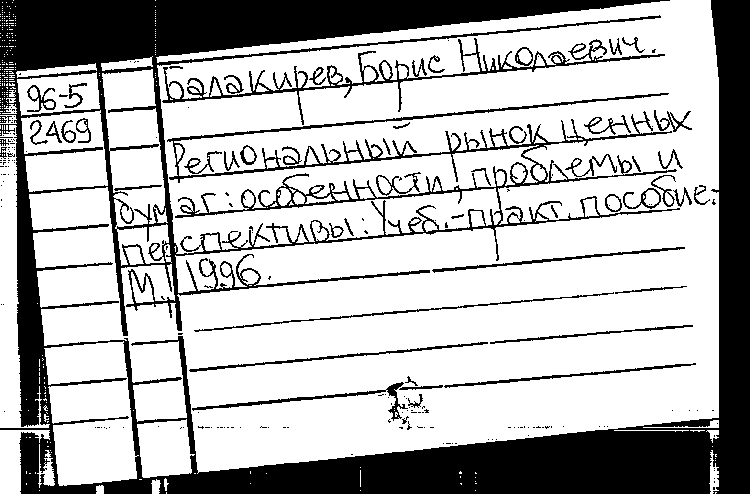 96-5
2469
Балакирев, Борис Николаевич.
Региональный рынок ценных
бумаг: особенности, проблемы и
перспективы: Учеб.-практ. пособие.-
М., 1996.